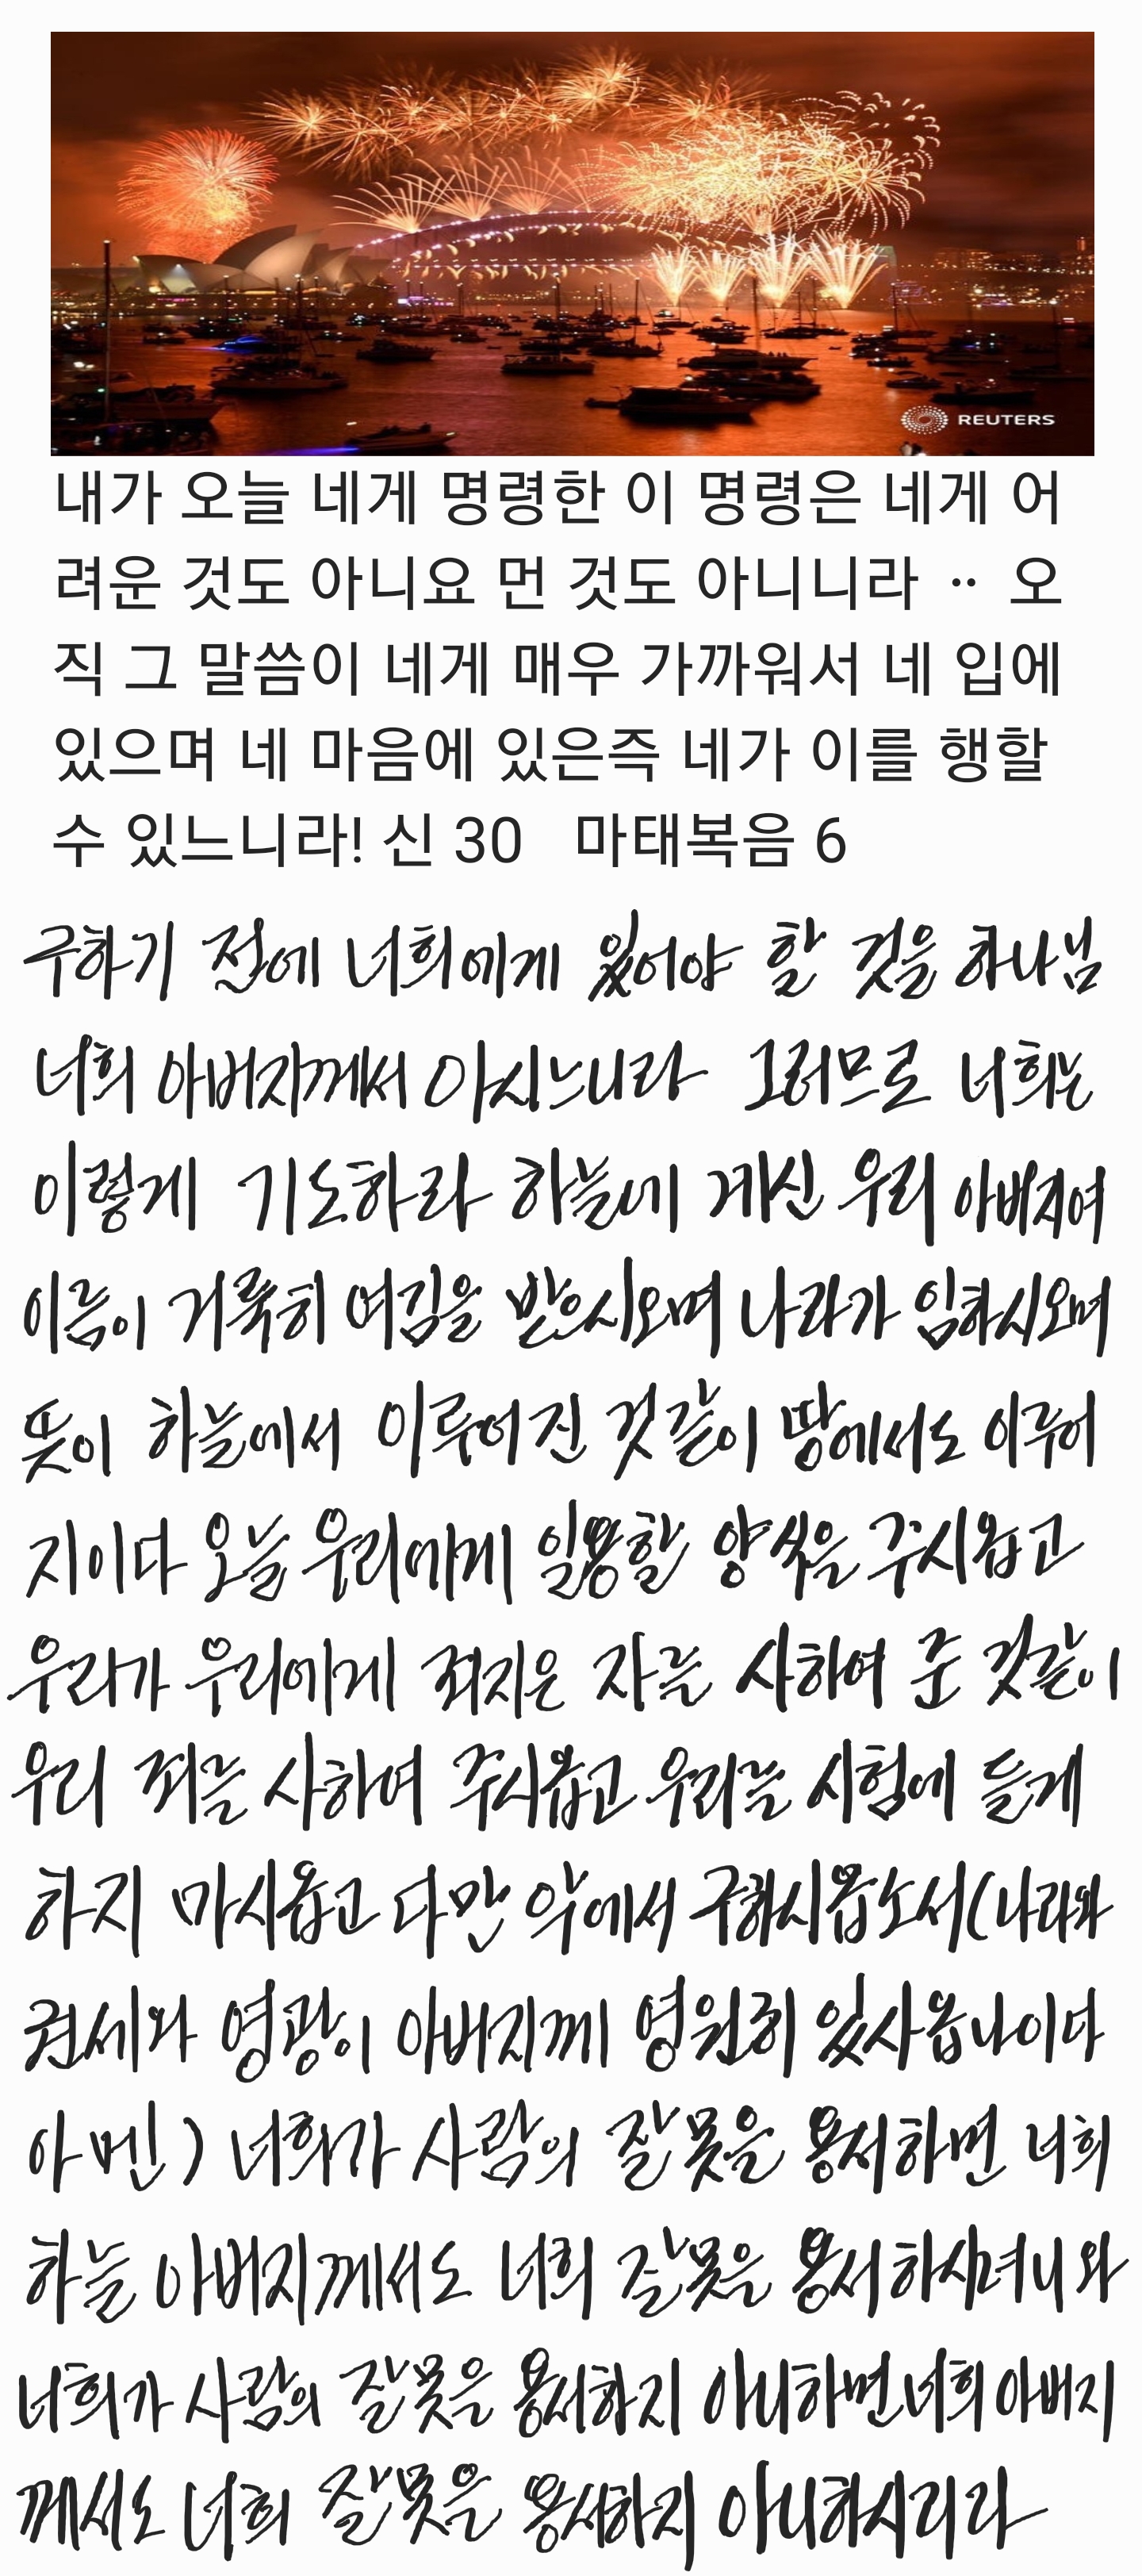 REUTERS
내가 오늘 네게 명령한 이 명령은 네게 어
려운 것도 아니요 먼 것도 아니니라 ·· 오
직 그 말씀이 네게 매우 가까워서 네 입에
있으며 네 마음에 있은즉 네가 이를 행할
수 있느니라! 신 30 마태복음 6
구하기 전에 너희에게 있어야 할 것을 하나님
너희 아버지께서 아시느니라 그러므로 너희는
이렇게 기도하라 하늘에 계신 우리 아버지여
이름이 거룩히 여김을 받으시오며 나라가 임하시오며
뜻이 하늘에서 이루어진 것같이 땅에서도 이루어
지이다 오늘 우리에게 일용할 양식을 주시옵고
우리가 우리에게 죄지은 자를 사하여 준 것같이
우리 죄를 사하여 주시옵고 우리를 시험에 들게
하지 마시옵고 다만 악에서 구하시옵소서(나라와
권세와 영광이 아버지께 영원히 있사옵나이다
아멘) 너희가 사람의 잘못을 용서하면 너희
하늘 아버지께서도 너희 잘못을 용서하시려니와
너희가 사람의 잘못을 용서하지 아니하면 너희 아버지
께서도 너희 잘못을 용서하지 아니하시리라